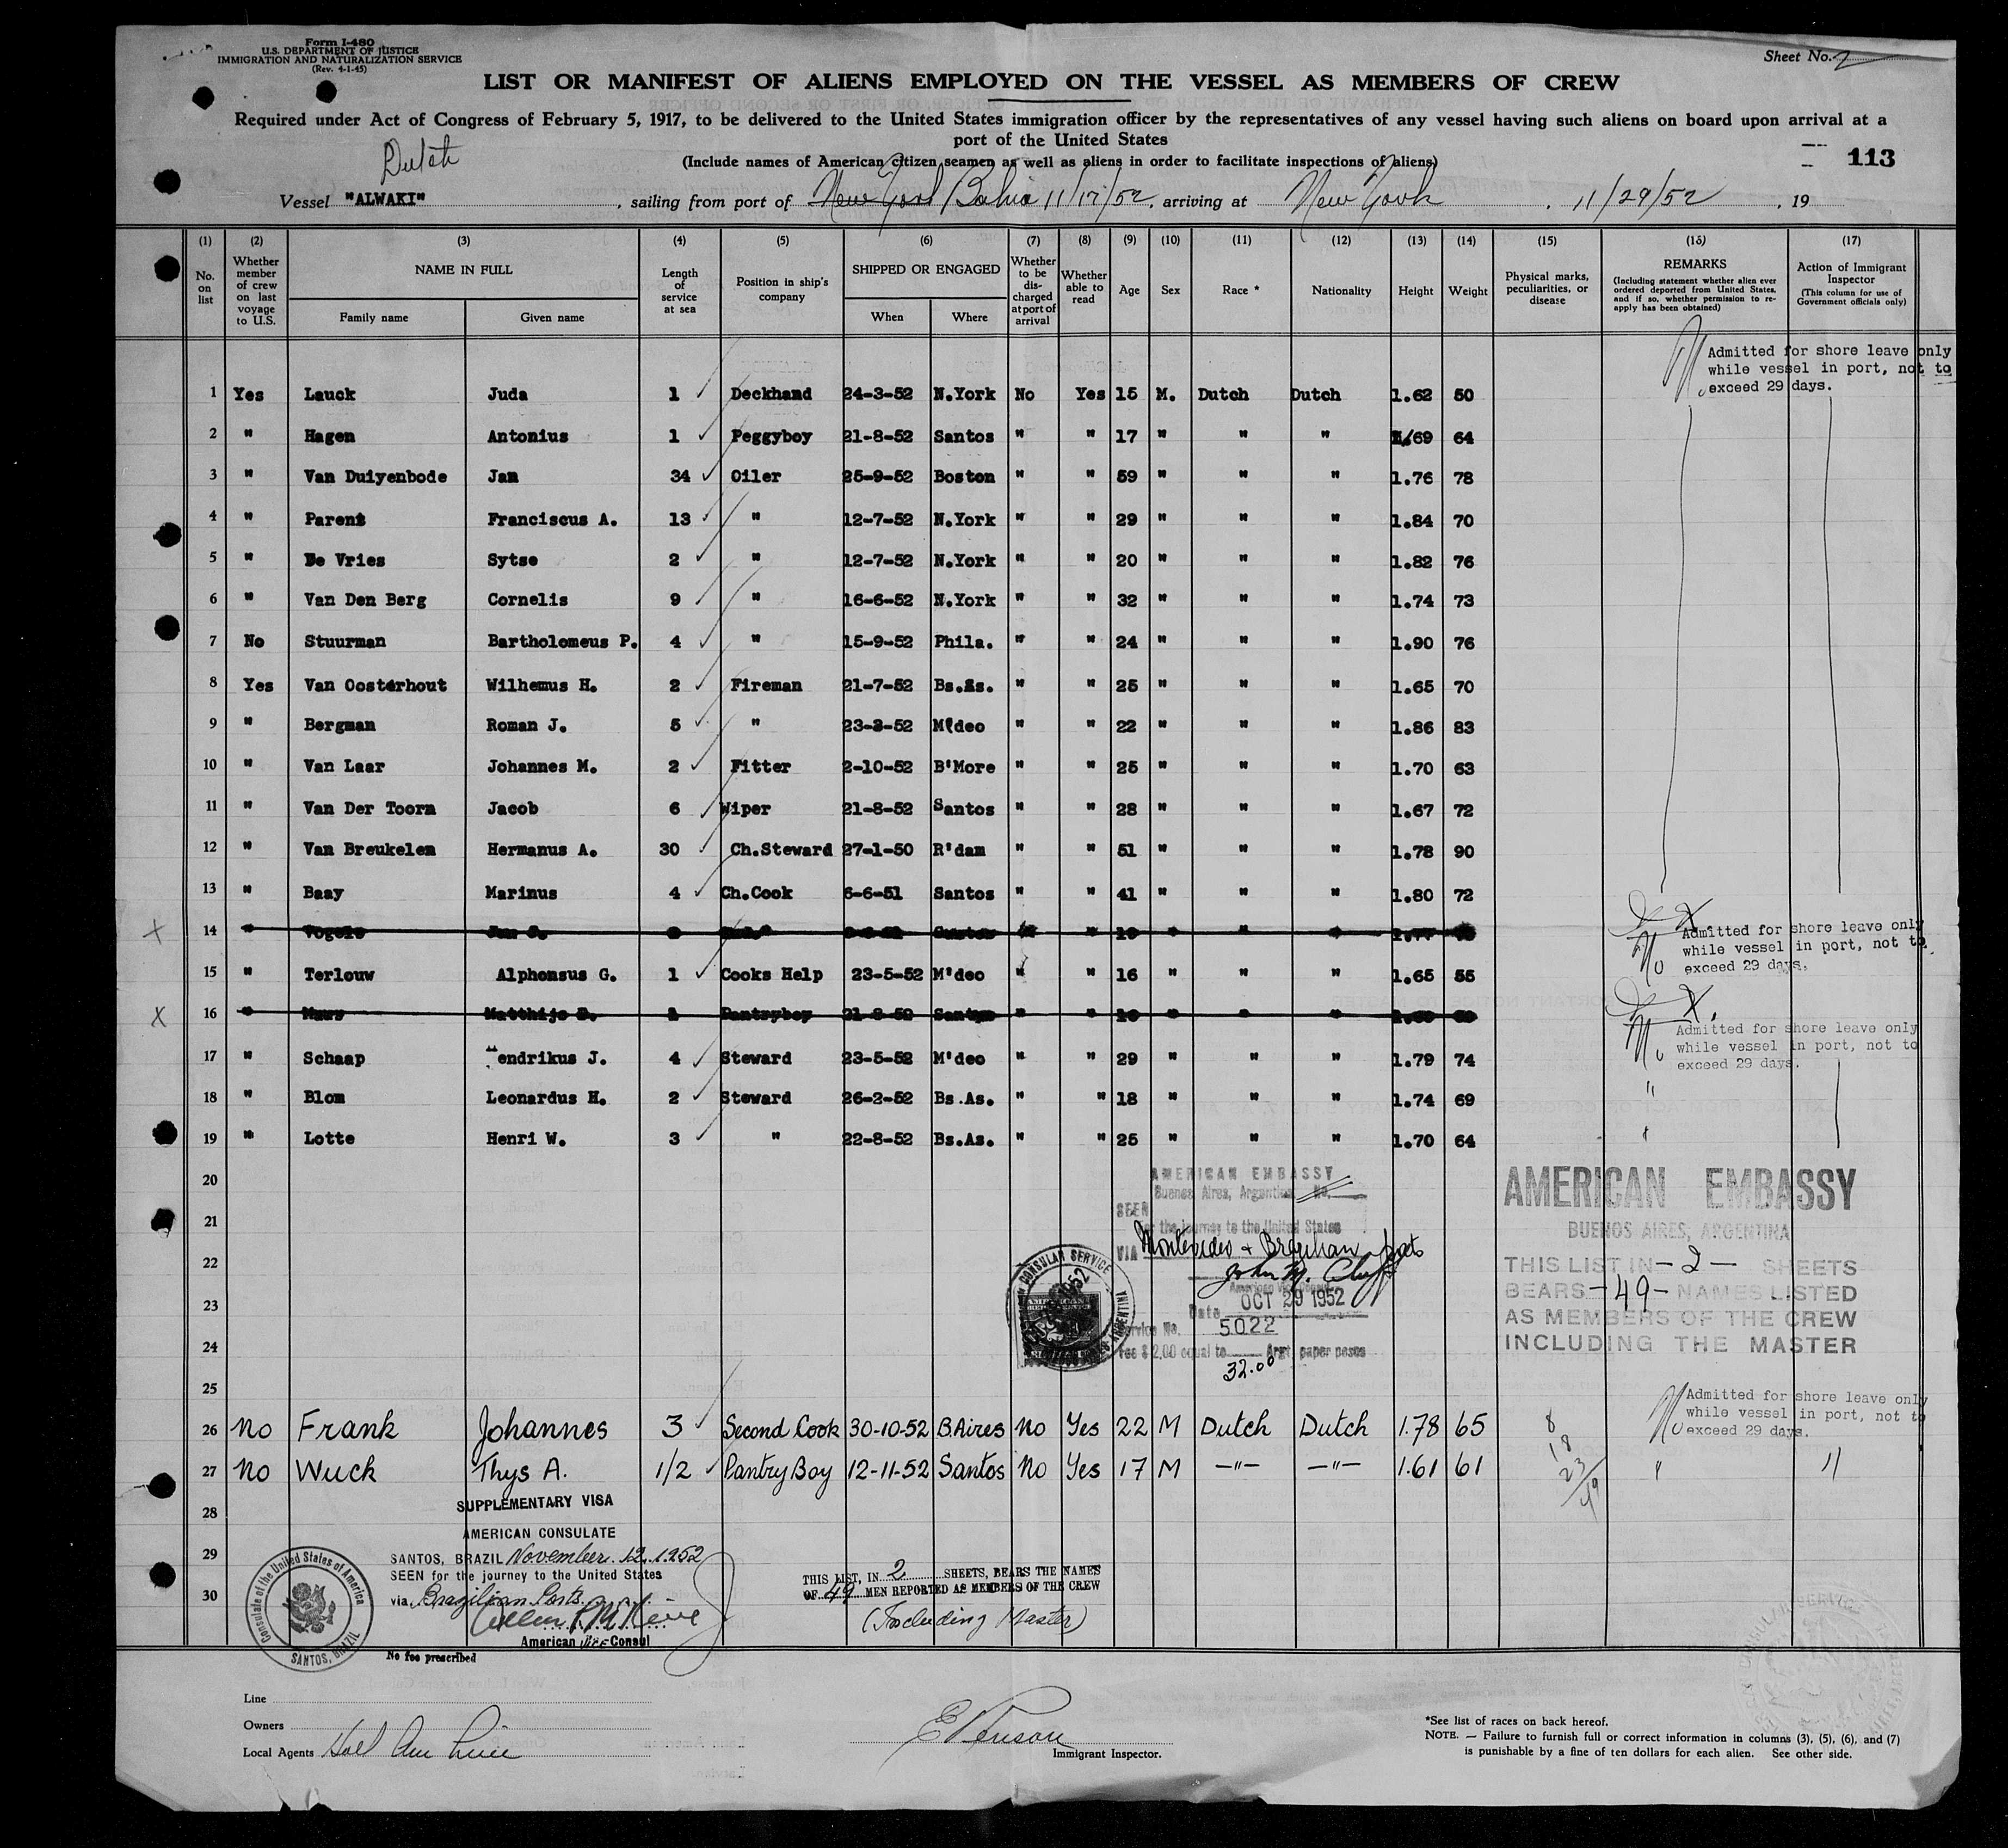 Form I-480
U.S. DEPARTMENT OF JUSTICE
IMMIGRATION AND NATURALIZATION SERVICE
(Rev. 4-1-45)
Sheet No. 2
LIST OR MANIFEST OF ALIENS EMPLOYED ON THE VESSEL AS MEMBERS OF CREW
Required under Act of Congress of February 5, 1917, to be delivered to the United States immigration officer by the representatives of any vessel having such aliens on board upon arrival at a
port of the United States
(Include names of American citizen seamen as well as aliens in order to facilitate inspections of aliens)
113
Dutch
Vessel "ALWAKI" , sailing from port of New York / Bahia 11/17/52, arriving at New York , 11/29/52 , 19
(1) (2) (3) (4) (5) (6) (7) (8) (9) (10) (11) (12) (13) (14) (15) (16) (17)
No. on list
Whether member of crew on last voyage to U.S.
NAME IN FULL
Family name
Given name
Length of service at sea
Position in ship's company
SHIPPED OR ENGAGED
When
Where
Whether to be discharged at port of arrival
Whether able to read
Age
Sex
Race *
Nationality
Height
Weight
Physical marks, peculiarities, or disease
REMARKS
(Including statement whether alien ever ordered deported from United States, and if so, whether permission to re-apply has been obtained)
Action of Immigrant Inspector
(This column for use of Government officials only)
Admitted for shore leave only
while vessel in port, not to
exceed 29 days.
1 Yes Lauck Juda 1 Deckhand 24-3-52 N.York No Yes 15 M. Dutch Dutch 1.62 50
2 " Hagen Antonius 1 Peggyboy 21-8-52 Santos " " 17 " " " 1/69 64
3 " Van Duiyenbode Jan 34 Oiler 25-9-52 Boston " " 59 " " " 1.76 78
4 " Parent Franciscus A. 13 " 12-7-52 N.York " " 29 " " " 1.84 70
5 " De Vries Sytse 2 " 12-7-52 N.York " " 20 " " " 1.82 76
6 " Van Den Berg Cornelis 9 " 16-6-52 N.York " " 32 " " " 1.74 73
7 No Stuurman Bartholomeus P. 4 " 15-9-52 Phila. " " 24 " " " 1.90 76
8 Yes Van Oosterhout Wilhemus H. 2 Fireman 21-7-52 Bs.As. " " 25 " " " 1.65 70
9 " Bergman Roman J. 5 " 23-3-52 M'deo " " 22 " " " 1.86 83
10 " Van Laar Johannes M. 2 Fitter 2-10-52 B'More " " 25 " " " 1.70 63
11 " Van Der Toorn Jacob 6 Wiper 21-8-52 Santos " " 28 " " " 1.67 72
12 " Van Breukelen Hermanus A. 30 Ch.Steward 27-1-50 R'dam " " 51 " " " 1.78 90
13 " Baay Marinus 4 Ch.Cook 6-6-51 Santos " " 41 " " " 1.80 72
X 14 " Vogels Jan " " " " "
Admitted for shore leave only
while vessel in port, not to
exceed 29 days.
15 " Terlouw Alphonsus G. 1 Cooks Help 23-5-52 M'deo " " 16 " " " 1.65 55
X 16 " Matthijs Pantryboy " " " " "
Admitted for shore leave only
while vessel in port, not to
exceed 29 days.
17 " Schaap Hendrikus J. 4 Steward 23-5-52 M'deo " " 29 " " " 1.79 74
18 " Blom Leonardus H. 2 Steward 26-2-52 Bs.As. " " 18 " " " 1.74 69 "
19 " Lotte Henri W. 3 " 22-8-52 Bs.As. " " 25 " " " 1.70 64 "
20
21
22
23
24
25
AMERICAN EMBASSY
Buenos Aires, Argentina No.
SEEN
for the journey to the United States
VIA Montevideo + Brazilian ports
John M.
Date OCT 29 1952
Service No. 5022
Fee $ 2.00 equal to Argt. paper pesos
32.00
CONSULAR SERVICE
AMERICAN EMBASSY
BUENOS AIRES, ARGENTINA
THIS LIST IN -2- SHEETS
BEARS -49- NAMES LISTED
AS MEMBERS OF THE CREW
INCLUDING THE MASTER
Admitted for shore leave only
while vessel in port, not to
exceed 29 days.
26 No Frank Johannes 3 Second Cook 30-10-52 B.Aires No Yes 22 M Dutch Dutch 1.78 65
27 No Wuck Thys A. 1/2 Pantry Boy 12-11-52 Santos No Yes 17 M -"- -"- 1.61 61 " "
8
18
23
49
28
29
30
SUPPLEMENTARY VISA
AMERICAN CONSULATE
SANTOS, BRAZIL November 12, 1952
SEEN for the journey to the United States
via Brazilian Ports
American Vice Consul
No fee prescribed
Consulate of the United States of America
SANTOS, BRAZIL
THIS LIST, IN 2 SHEETS, BEARS THE NAMES
OF 49 MEN REPORTED AS MEMBERS OF THE CREW
(Including Master)
Line
Owners
Local Agents
Immigrant Inspector.
*See list of races on back hereof.
NOTE. — Failure to furnish full or correct information in columns (3), (5), (6), and (7)
is punishable by a fine of ten dollars for each alien. See other side.